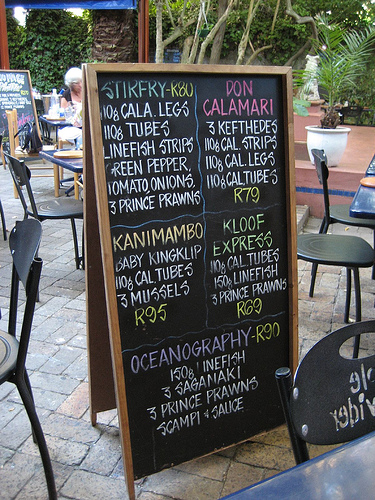 STIRFRY-R80
110g CALA. LEGS
110g TUBES
LINEFISH STRIPS
GREEN PEPPER,
TOMATO, ONIONS,
3 PRINCE PRAWNS
DON
CALAMARI
3 KEFTHEDES
110g CAL. STRIPS
110g CAL. LEGS
110g CAL TUBES
R79
KANIMAMBO
BABY KINGKLIP
110g CAL TUBES
3 MUSSELS
R95
KLOOF
EXPRESS
110g CAL TUBES
150g LINEFISH
3 PRINCE PRAWNS
R69
OCEANOGRAPHY-R90
150g LINEFISH
3 SAGANAKI
3 PRINCE PRAWNS
SCAMPI & SAUCE